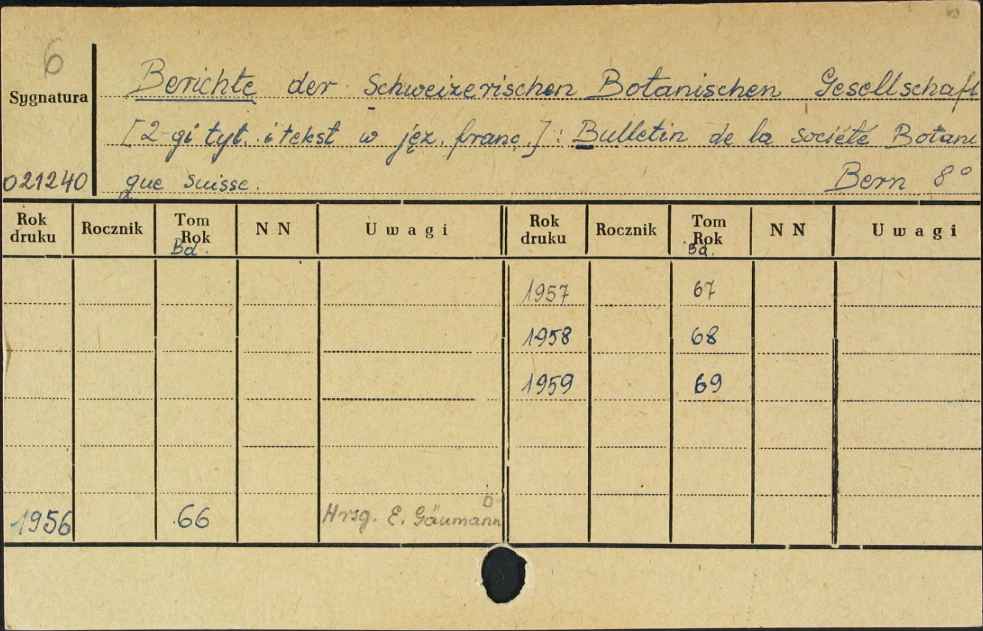 6
Sygnatura
Berichte der Schweizerischen Botanischen Gesellschaft
[2-gi tyt. i tekst w jęz. franc.]: Bulletin de la société Botani
021240 que Suisse. Bern 8°
Rok druku Rocznik Tom Rok Bd. N N Uwagi Rok druku Rocznik Tom Rok Bd. N N Uwagi
1957 67
1958 68
1959 69
1956 66 Hrsg. E. Gäumann